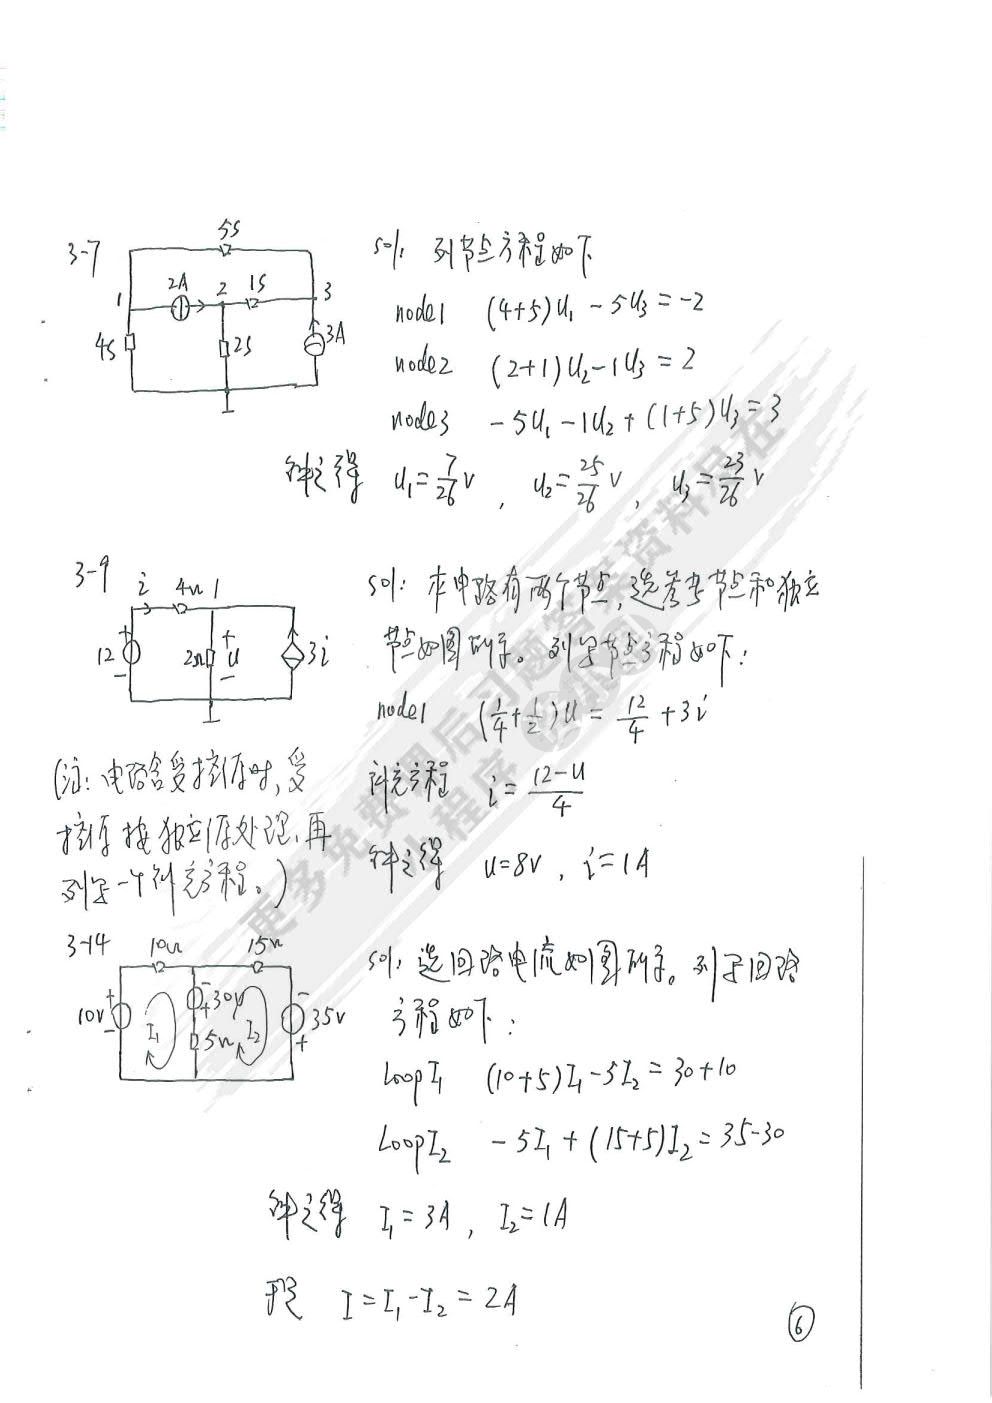 3-7
5S
2A 2 1S
1 3
4S 2S 3A
sol: 列节点方程如下
node1 (4+5)U₁ - 5U₃ = -2
node2 (2+1)U₂ - 1U₃ = 2
node3 - 5U₁ - 1U₂ + (1+5)U₃ = 3
解之得 U₁ = 7/26 V , U₂ = 25/26 V , U₃ = 23/26 V
3-9 i 4Ω 1
12 + - 2Ω + u - 3i
sol: 本电路有两个节点,选参考节点和独立
节点如图所示。列写节点方程如下:
node1 (1/4 + 1/2)U = 12/4 + 3i
补充方程 i = (12-U)/4
解之得 U=8V , i=1A
(注: 电路含受控源时,受
控源按独立源处理,再
列写一个补充方程。)
3-14 10Ω 15Ω
10V + - I₁ - + 30V 5Ω I₂ - + 35V
sol: 选回路电流如图所示。列写回路
方程如下:
Loop I₁ (10+5)I₁ - 5I₂ = 30+10
Loop I₂ - 5I₁ + (15+5)I₂ = 35-30
解之得 I₁ = 3A , I₂ = 1A
I = I₁ - I₂ = 2A
6
更多免费课后习题答案资料尽在
小程序